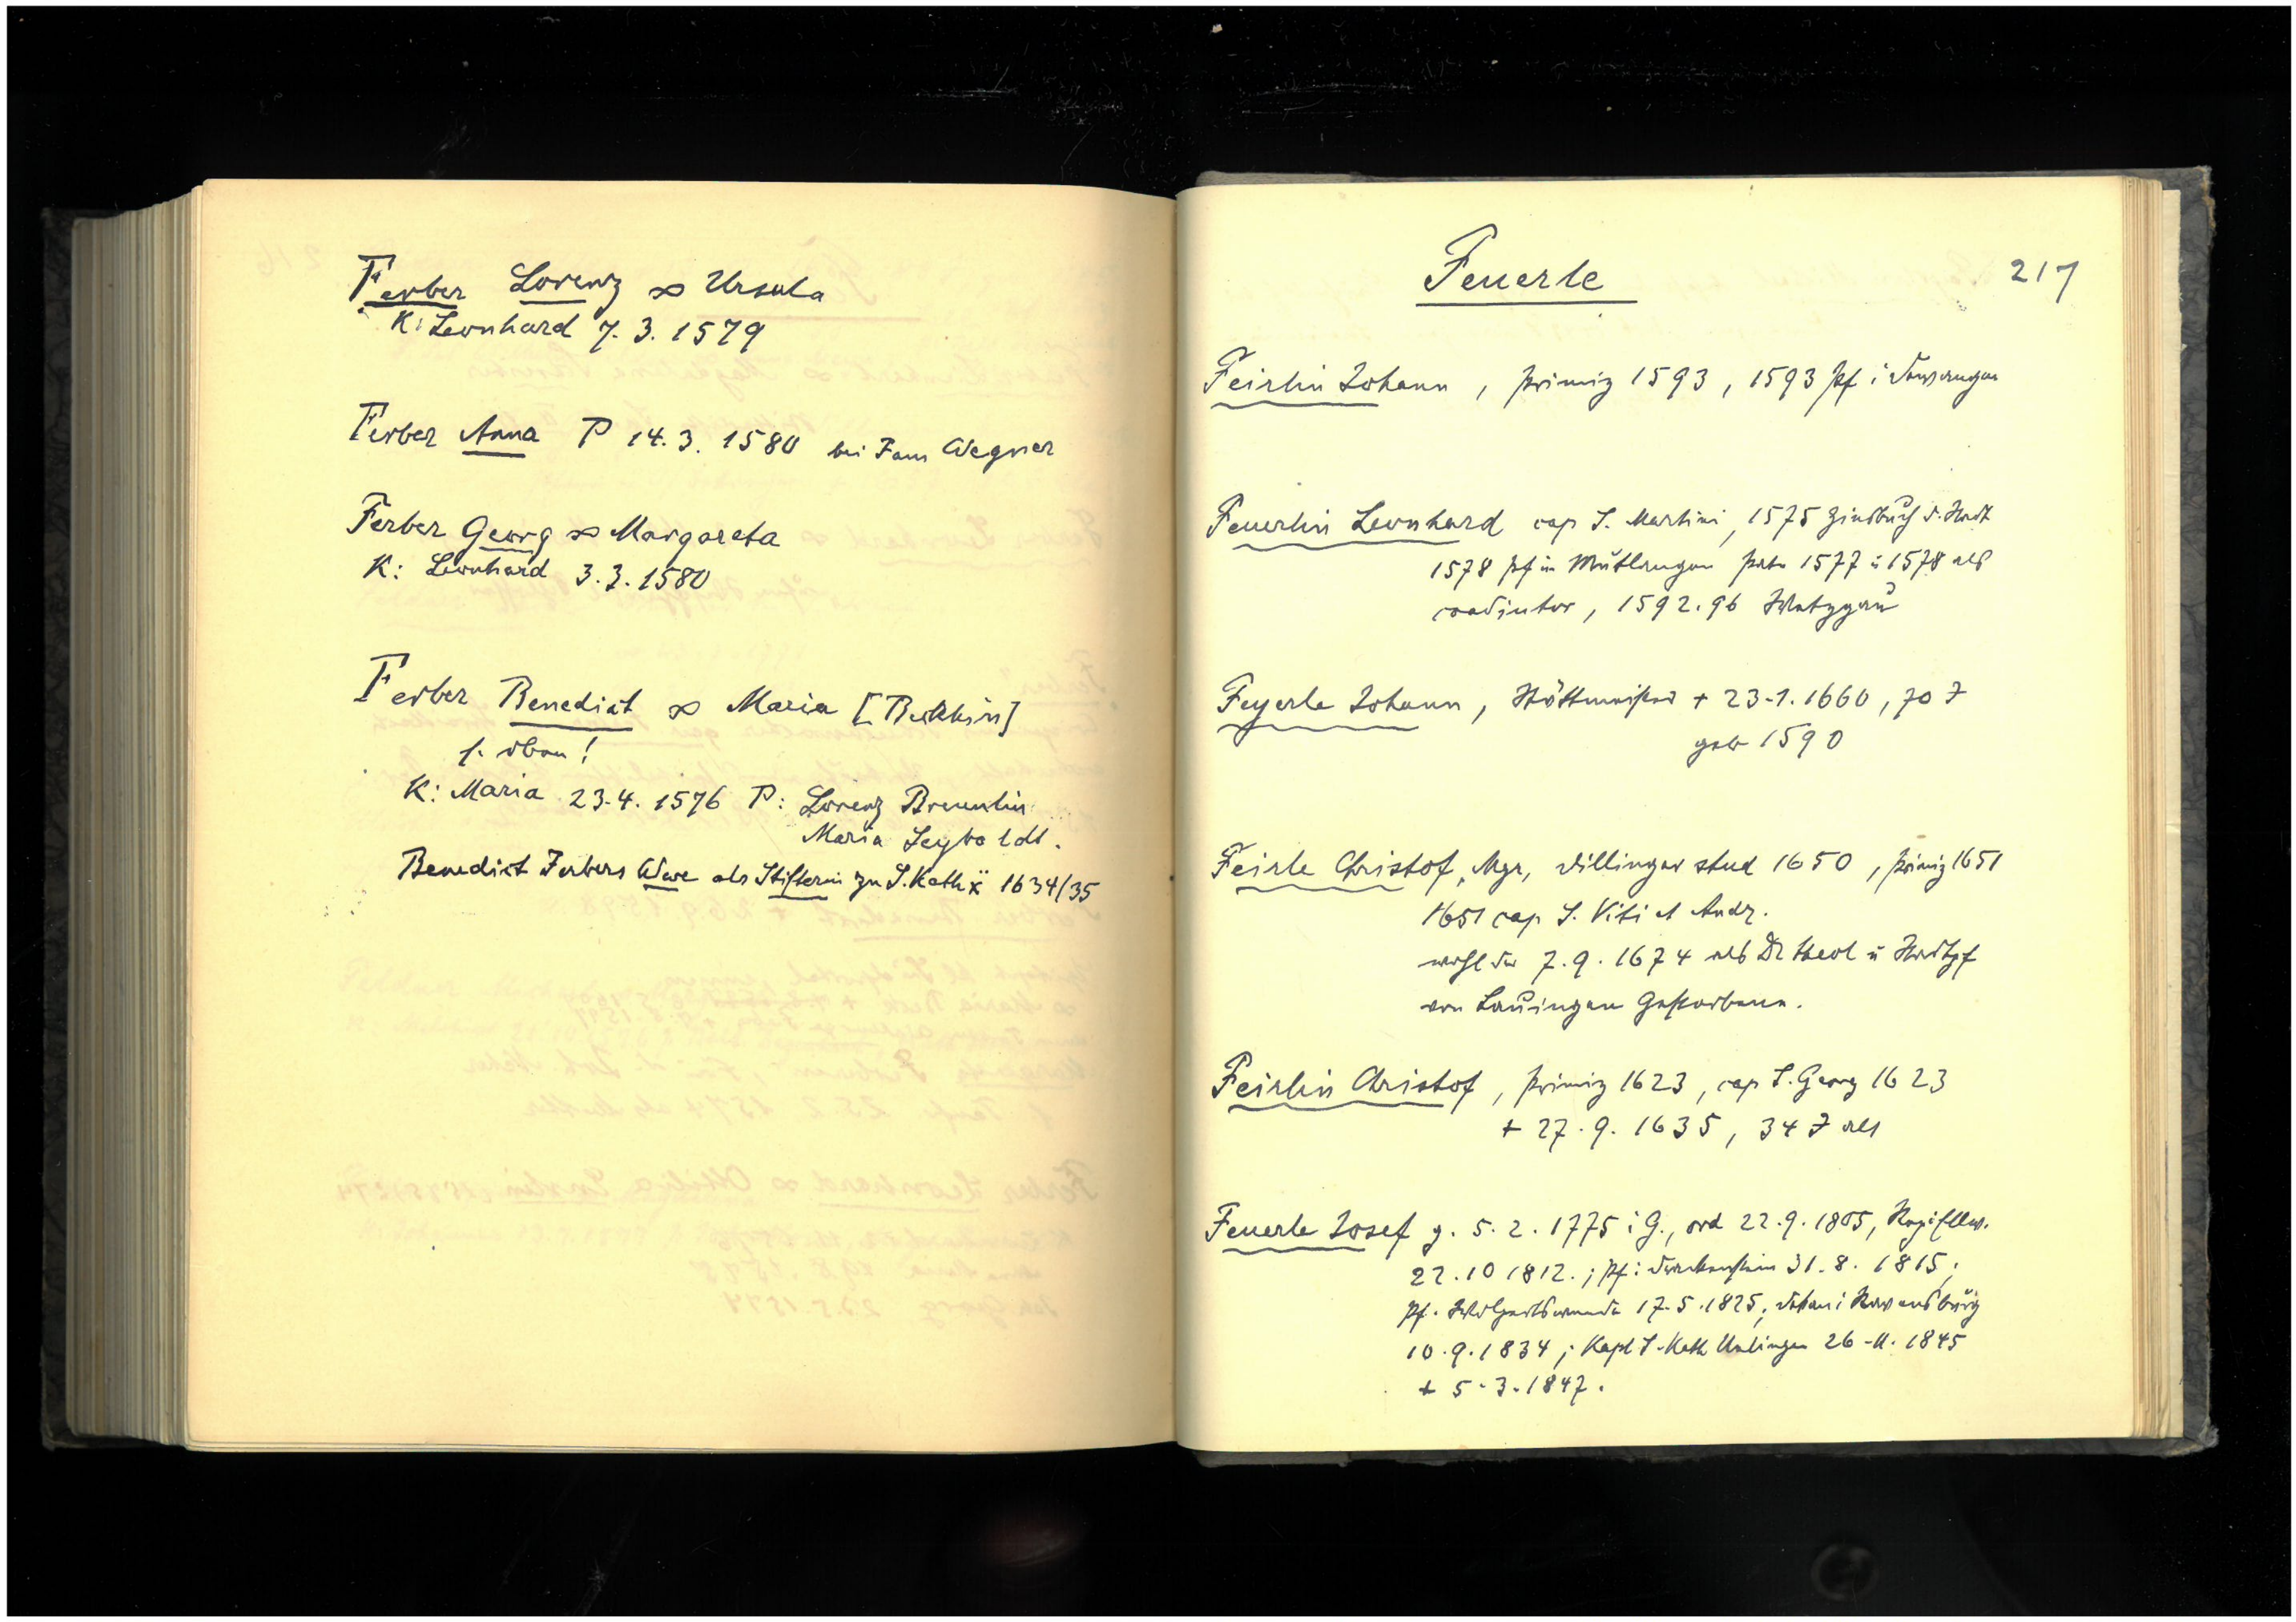 Ferber Lorenz ∞ Ursula
K: Leonhard 7. 3. 1579
Ferber Anna P 14. 3. 1580 bei Fam Wegner
Ferber Georg ∞ Margareta
K: Leonhard 3. 3. 1580
Ferber Benedict ∞ Maria
s. oben!
K: Maria 23. 4. 1576 P: Lorenz
Maria Seyboldt.
Benedict Ferbers Wwe als Stifterin zu S. Kath 1634/35
Feuerle
217
Feirlin Johann, primiz 1593, 1593 Pf i Dewangen
Feuerlin Leonhard cap S. Martini, 1575 Zinsbuch d. Stadt
1578 Pf in Mutlangen 1577 u 1578 als
coadiutor, 1592. 96 Wetzgau
Feyerle Johann, Stättmeister + 23. 1. 1660, 70 J
geb 1590
Feirle Christof, Mgr, Dillinger stud 1650, primiz 1651
1651 cap S. Viti et Andr.
wohl der 7. 9. 1674 als Dr theol u Stadtpf
von Lauingen Gestorbene.
Feirlin Christof, primiz 1623, cap S. Georg 1623
+ 27. 9. 1635, 34 J alt
Feuerle Josef g. 5. 2. 1775 i G., ord 22. 9. 1805,
22. 10 1812. ; Pf i Drackenstein 31. 8. 1815;
Pf. Wolpertswende 17. 5. 1825; Dekan i Ravensburg
10. 9. 1834; Kapl S. Kath Unlingen 26. 11. 1845
+ 5. 3. 1847.